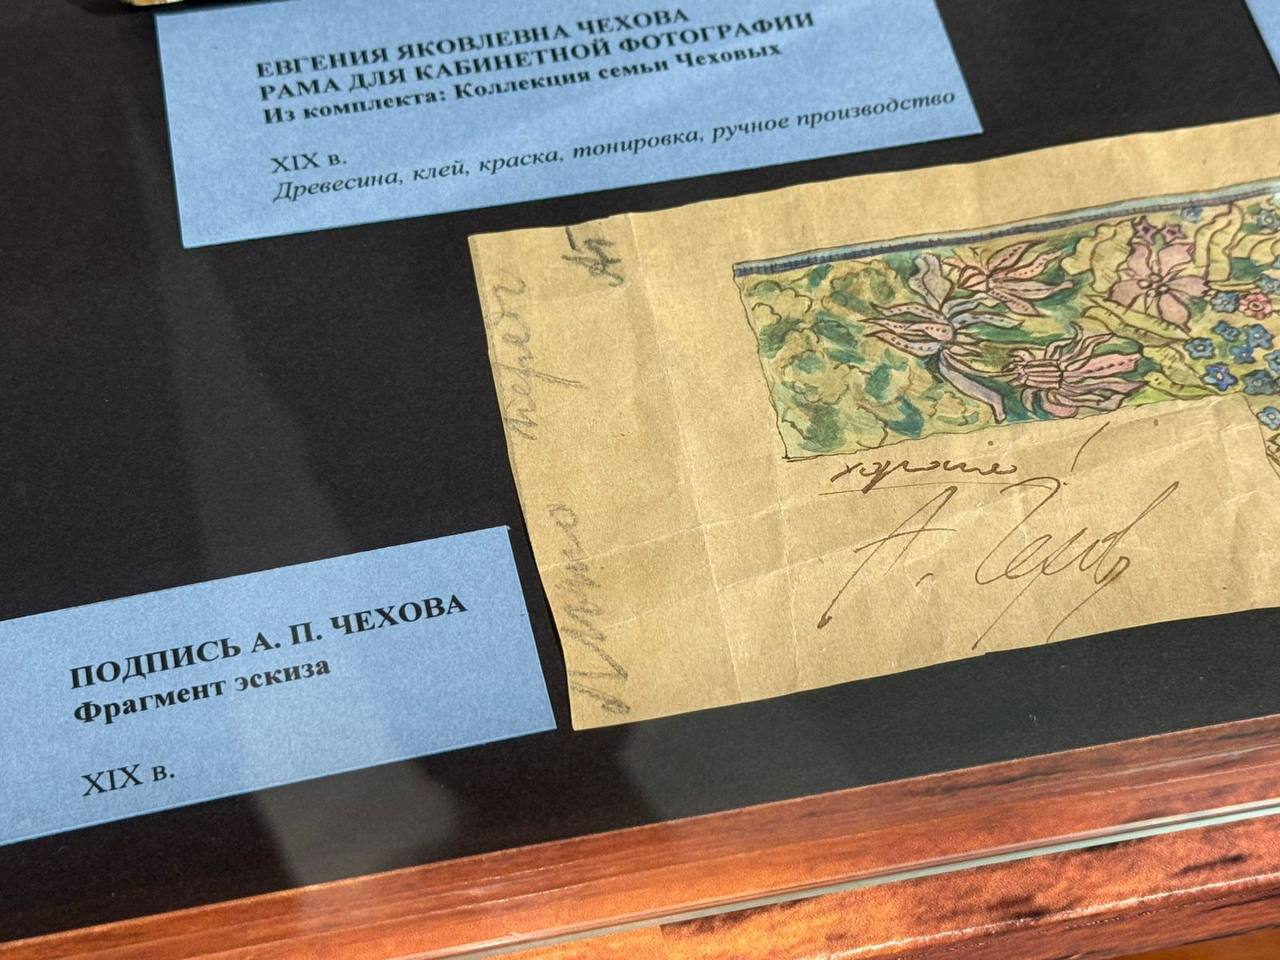 ЕВГЕНИЯ ЯКОВЛЕВНА ЧЕХОВА
РАМА ДЛЯ КАБИНЕТНОЙ ФОТОГРАФИИ
Из комплекта: Коллекция семьи Чеховых
XIX в.
Древесина, клей, краска, тонировка, ручное производство
хорошо!
А. Чехов
ПОДПИСЬ А. П. ЧЕХОВА
Фрагмент эскиза
XIX в.